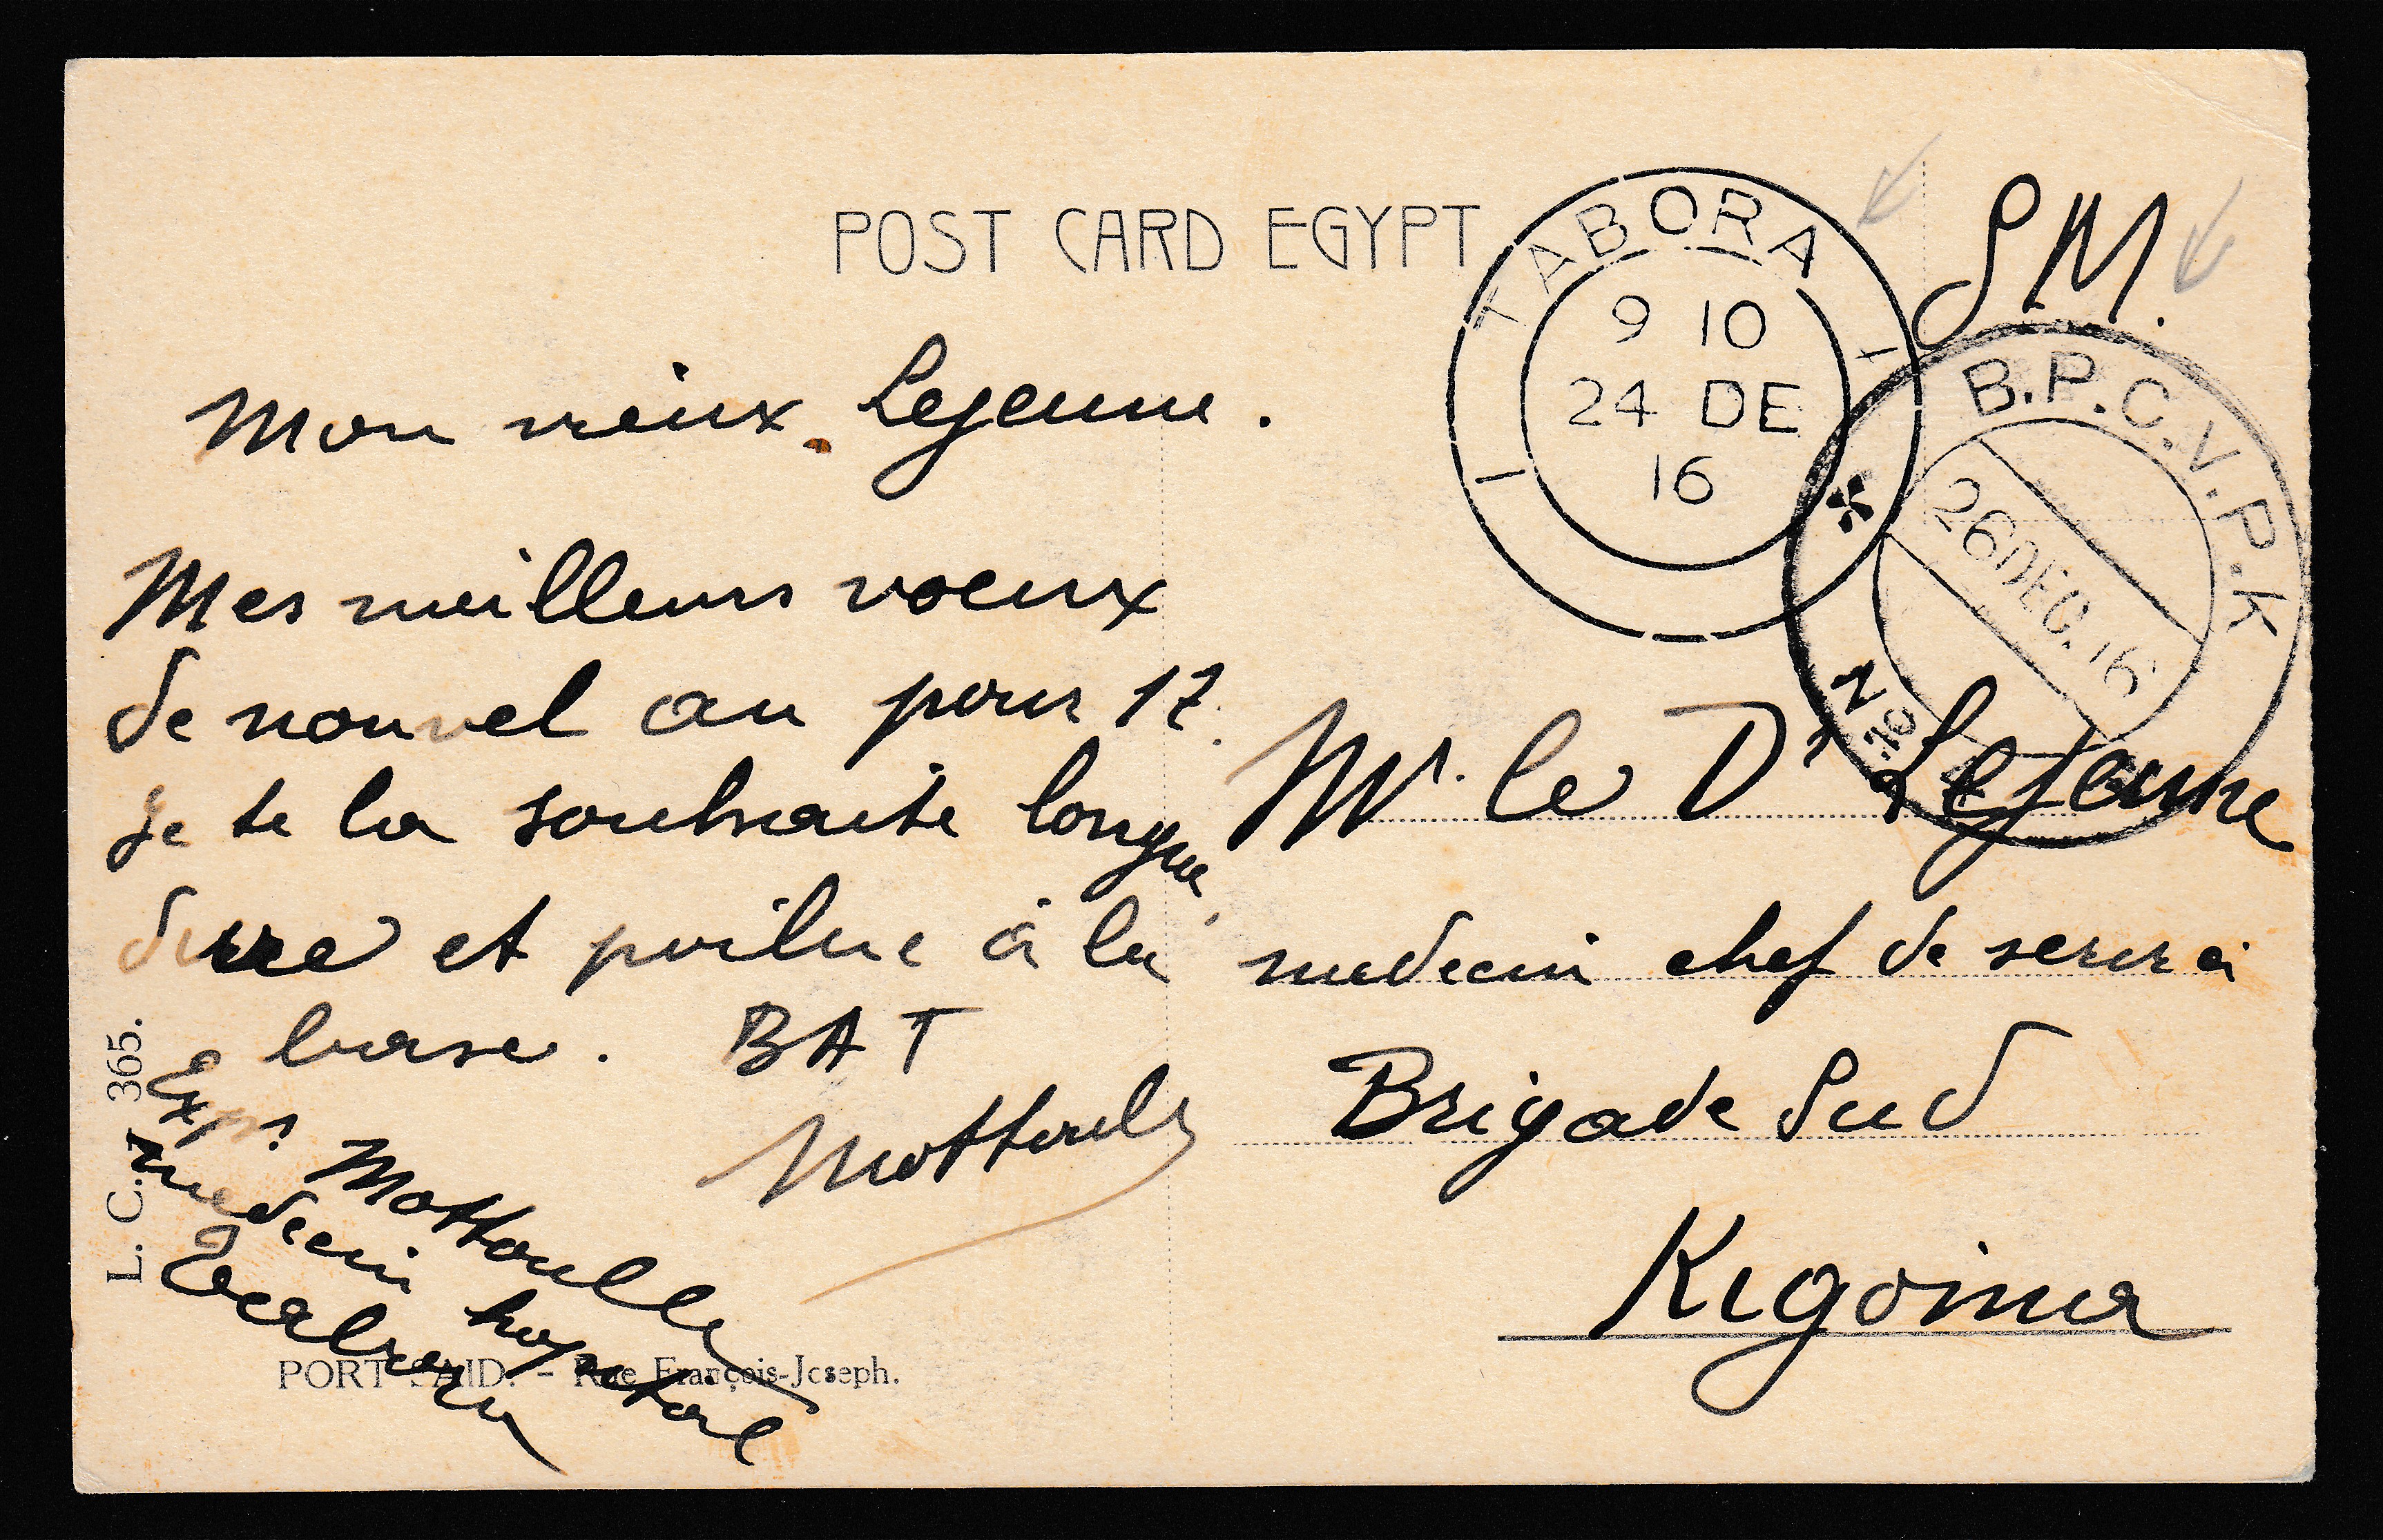 POST CARD EGYPT
TABORA
9 10
24 DE
16
S.M.
B.P.C.V.P.K
26 DEC. 16
No 10.
Mon vieux Lejeune.
Mes meilleurs voeux
de nouvel an pour 17.
Je te la souhaite longue,
dure et poilue à la
base. BAT
Mottoulle
Mr. le Dr Lejeune
medecin chef de service
Brigade Sud
Kigoma
Expr Mottoulle
medecin hopital
Tabora
L. C. 365.
PORT SAID. - Rue François-Joseph.